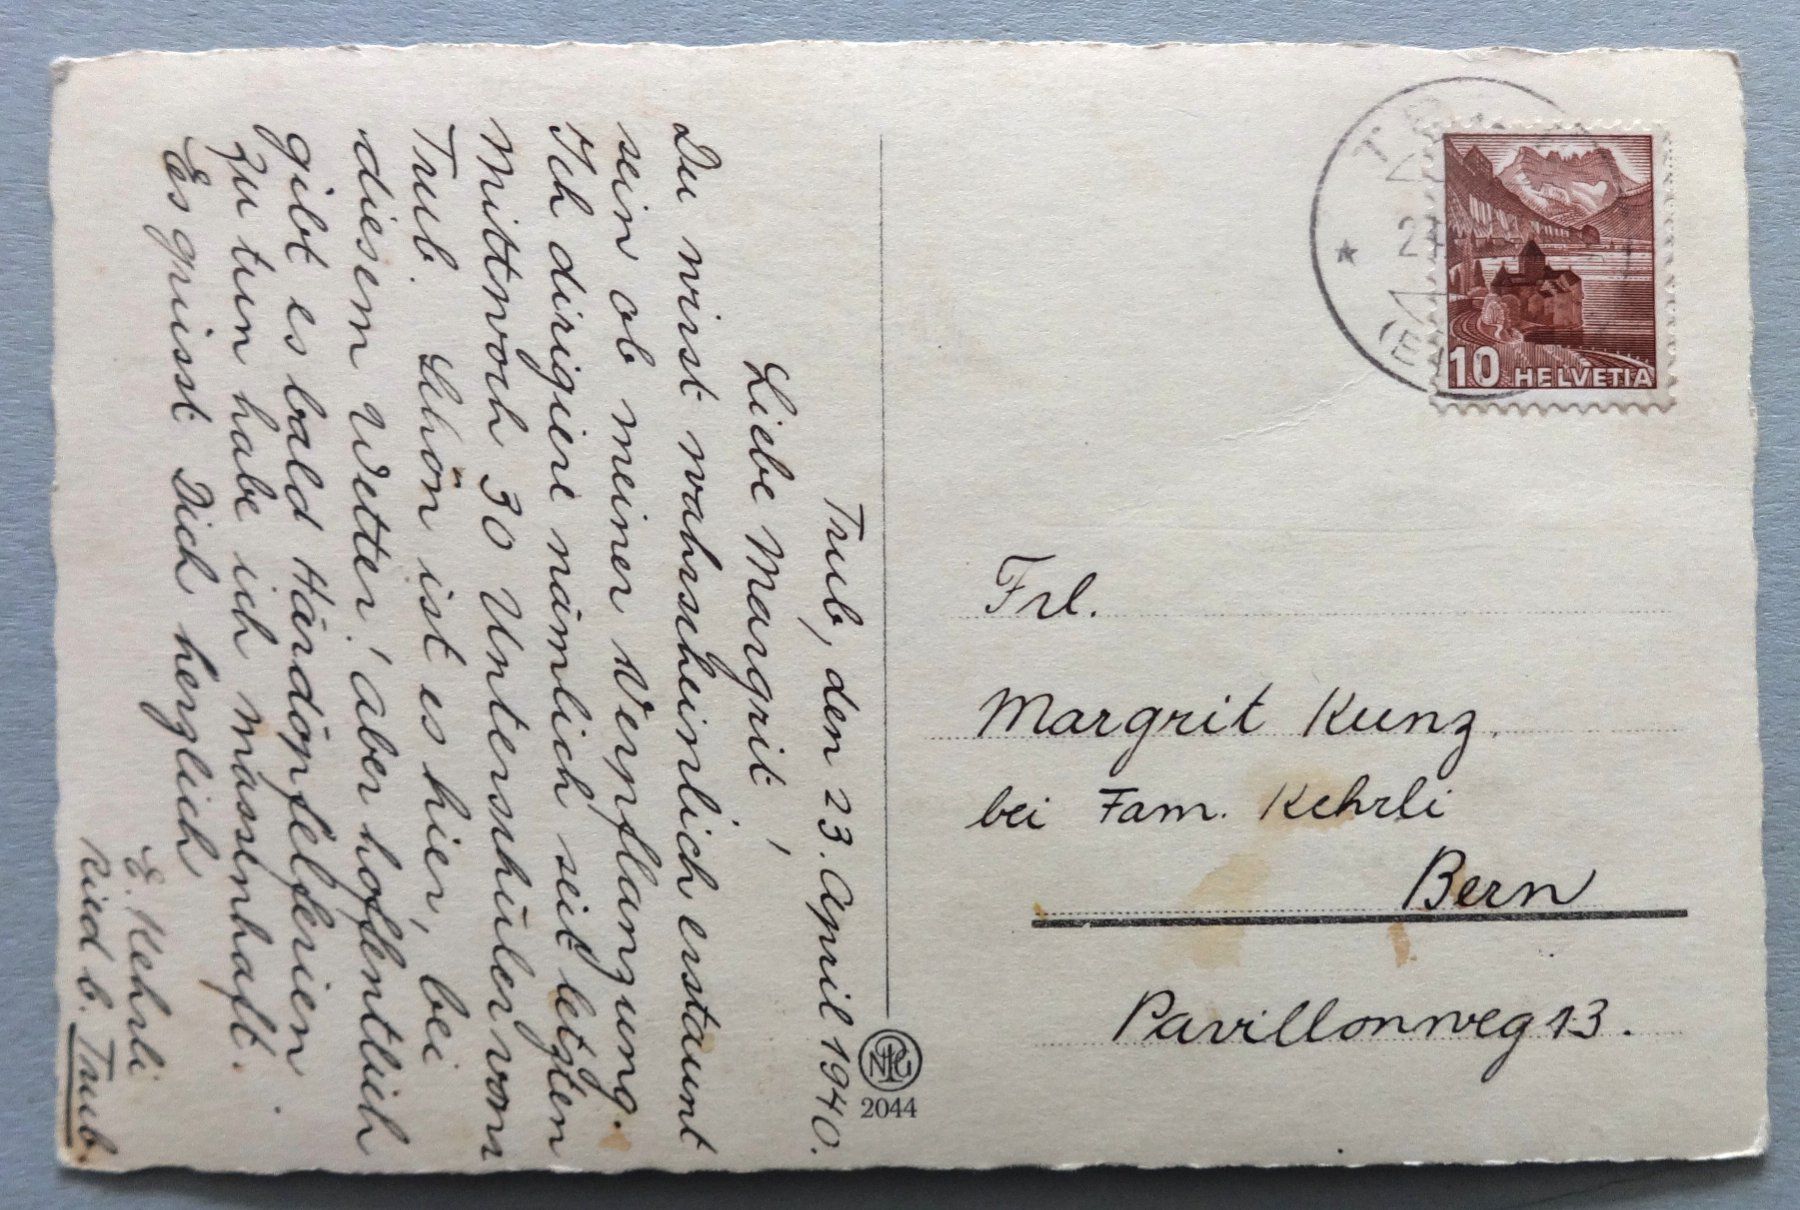 Trub, den 23. April 1940.
Liebe Margrit!
Du wirst wahrscheinlich erstaunt
sein ob meiner Verpflanzung.
Ich dirigiere nämlich seit letzten
Mittwoch 30 Unterschüler vom
Trub. Schön ist es hier, bei
diesem Wetter! Aber hoffentlich
gibt es bald Härdöpfelferien
Zu tun habe ich massenhaft.
Es grüsst Dich herzlich
E. Kehrli
Ried b. Trub.
10 HELVETIA
Frl.
Margrit Kunz.
bei Fam. Kehrli
Bern
Pavillonweg 13.
2044